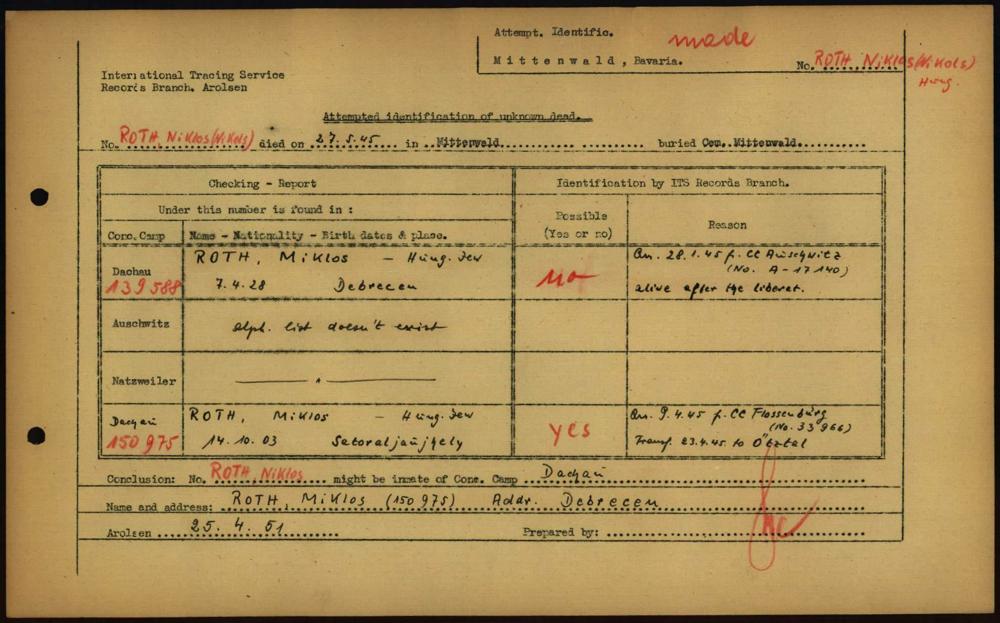 Attempt. Identific. made
Mittenwald, Bavaria. No. ROTH, Niklos (Nikols)
Hung.
International Tracing Service
Records Branch. Arolsen
Attempted identification of unknown dead.
No. ROTH, Niklos (Nikols) died on 27.5.45 in Mittenwald buried Cem. Mittenwald.
Checking - Report Identification by ITS Records Branch.
Under this number is found in :
Possible
(Yes or no) Reason
Conc. Camp Name - Nationality - Birth dates & place.
Dachau ROTH, Miklos - Hung. Jew no Arr. 28.1.45 f. CC Auschwitz
(No. A-17140)
139588 7.4.28 Debrecen alive after the liberat.
Auschwitz alph. list doesn't exist
Natzweiler
Dachau ROTH, Miklos - Hung. Jew yes Arr. 9.4.45 f. CC Flossenbürg
(No. 33966)
150975 14.10.03 Transf. 23.4.45 to Ötztal
Conclusion: No. ROTH, Niklos might be inmate of Conc. Camp Dachau
Name and address: ROTH, Miklos (150975) Addr. Debrecen
Arolsen 25.4.51 Prepared by: